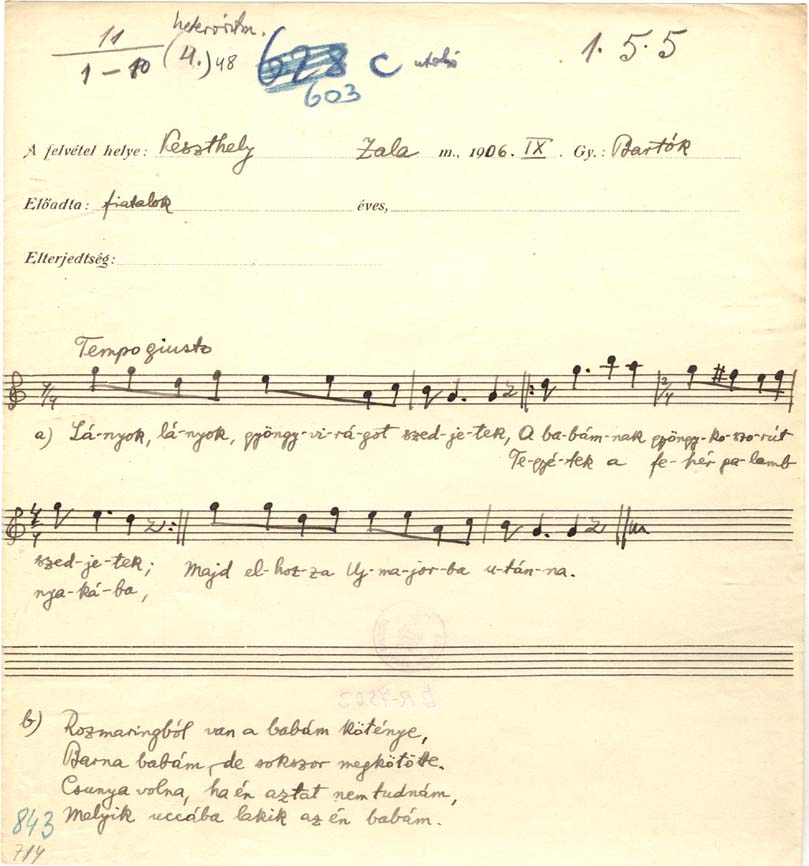 heterοritm.
11
1 – 10 (4.) 48 628 c utolsó 1. 5. 5
603
A felvétel helye: Keszthely Zala m., 1906. IX. Gy.: Bartók
Előadta: fiatalok éves,
Elterjedtség:
Tempo giusto
a) Lá-nyok, lá-nyok, gyöngy-vi-rá-got szed-je-tek, A ba-bám-nak gyöngy-ko-szo-rút
Te-gyé-tek a fe-hér ga-lamb
szed-je-tek; Majd el-hoz-za Uj-ma-jor-ba u-tán-na.
nya-ká-ba,
b) Rozmaringból van a babám köténye,
Barna babám, de sokszor megkötötte.
Csunya volna, ha én aztat nem tudnám,
Melyik uccába lakik az én babám.
843
714